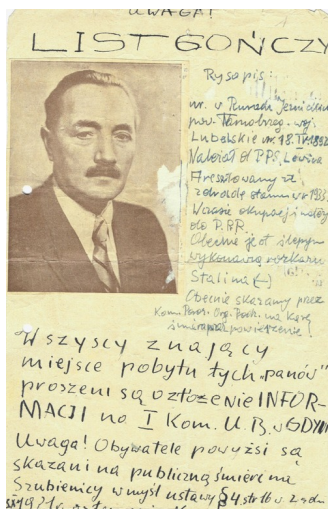 UWAGA!
LIST GOŃCZY
Rysopis:
ur. w
pow. Tarnobrzeg. woj.
Lubelskie ur. 18.IV.1892
Należał do P.P.S. Lewica
Aresztowany za
zdradę stanu w r 1933.
W czasie okupacji należy
do P.P.R.
Obecnie jest ślepym
wykonawcą rozkazu
Stalina (-)
Obecnie skazany przez
na karę
śmierci powieszenie!
Wszyscy znający
miejsce pobytu tych „panów"
proszeni są o złożenie INFOR-
MACJI na I Kom. U.B. w GDYNI
Uwaga! Obywatele powyżsi są
skazani na publiczną śmierć na
Szubienicy w myśl ustawy § 4. str 16 w. 2 z dn